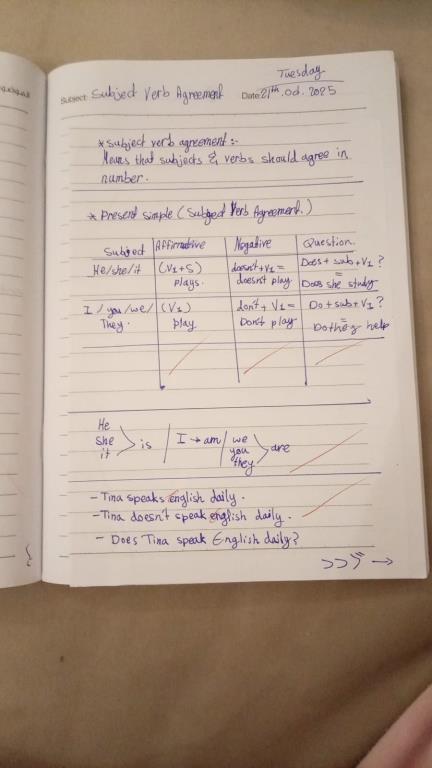 Tuesday
Subject: Subject Verb Agreement Date: 21th. Oct. 2025
* Subject verb agreement :-
Means that subjects & verbs should agree in
number.
* Present simple (Subject Verb Agreement.)
Subject | Affirmative | Negative | Question.
He/she/it | (V1+S) | doesn't+V1= | Does+sub+V1?
plays. | doesn't play. | = Does she study
I / you/we/ | (V1) | don't + V1 = | Do+sub+V1?
They. | play. | Don't play | = Do they help
He
she > is / I → am / we
it you > are
they
- Tina speaks english daily.
- Tina doesn't speak english daily.
- Does Tina speak English daily?
>>> →